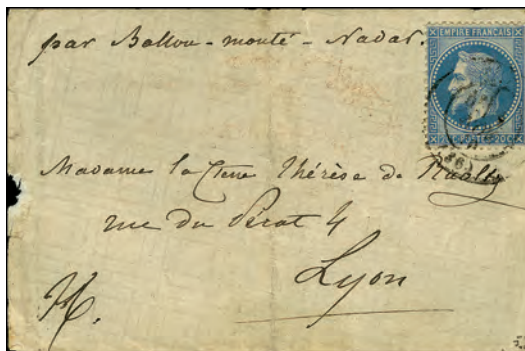 par Ballon-monté-Nadar.
EMPIRE FRANÇAIS
20C POSTES 20C
Madame la Ctesse Thérèse de
rue du Pérat 4
Lyon